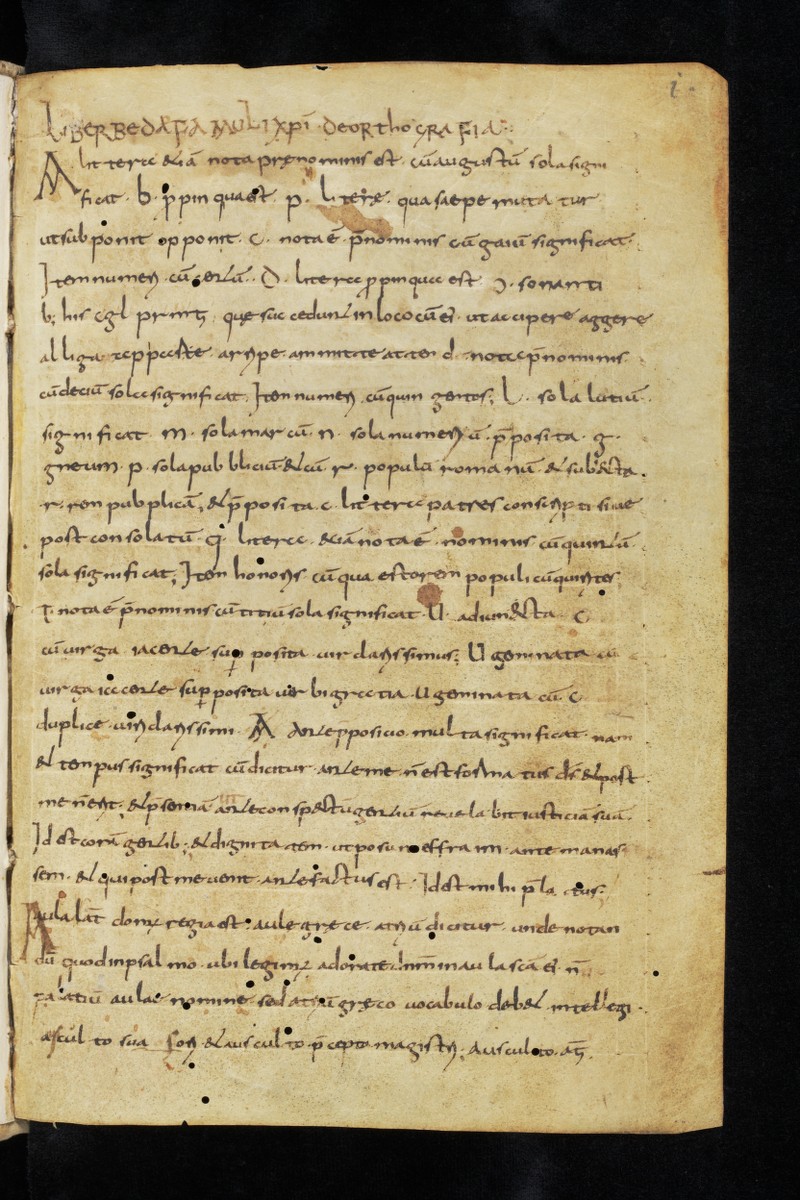 i
LIBER BEDAE FAMULI XPI DE ORTHOGRAFIA
A littera etiā nota prenominis est cū augustū sola signi
ficat. b. ꝓpinqua est p. literę. qua saepe mutatur
ut subponit opponit. c. nota ē p̄nominis cū gaiū significat.
Item numeri cū D. littera ꝓpinqua est
b; his c g l p r n t que succedunt in locū eius ut accipere aggere
alliga te appare arripe ammitte atten d nota p̄nominis
cū deciū sola significat. Item numeri cū quingentos; L. sola lutiū
significat. m. sola marcū. n. sola numeriū. p̄posita g.
gneum. p. sola pubbliciū. & cū r. populū romanū. & subiecta
r. rem pubplicā; & p̄posita c. littera patres conscripti siue
post consolatū. q. littera. etiā nota ē nominis cū quintū
sola significat; Item honoris cū quaestorem populi cū quirites
t. nota ē p̄nominis cū titiū sola significat. U. adiuncta c
cū uirga iacente sup posita uir clarissimus; U geminata cū
uirga iacente sup posita uerbi gratia. U geminata cū c
duplice uiri clarissimi. A Ante p̄posicio multa significat. nam
& tempus significat cū dicitur. ante me n̄ est formatus d̄s & post
me n̄ erit; & p̄sentiā ante conspectū gentiū reuelabit iusticiā suā.
Id est corā gentib; & dignitatem. ut posuit effraim ante manas
sem. & qui post me uenit. ante factus est. Id est mihi p̄latus;
Aula lat̄ domus regia est. aule grece. atriū dicitur. unde notan
dū quod in psalmo. ubi legimus adorate dn̄m in aula scā eius n̄
palatiū aulae nomine sed atriū greco uocabulo debet intellegi.
asculto sua & ausculto p̄cepta magistri. Ausculto. at̄